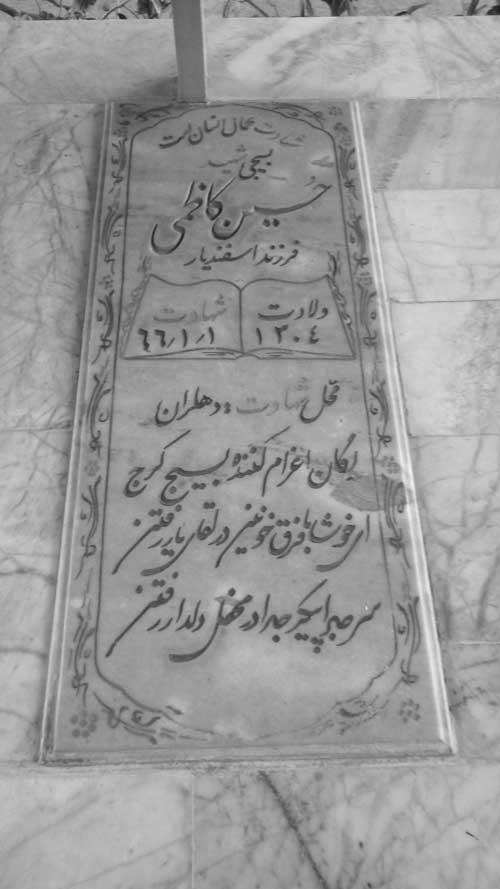 شهادت کمال انسان است
بسیجی شهید
حسین کاظمی
فرزند اسفندیار
ولادت شهادت
۱۳۰۴ ۶۶/۱/۱
محل شهادت : دهلران
یگان اعزام کننده بسیج کرج
ای خوشا با فرق خونین در لقای یار رفتن
سر جدا پیکر جدا در محفل دلدار رفتن